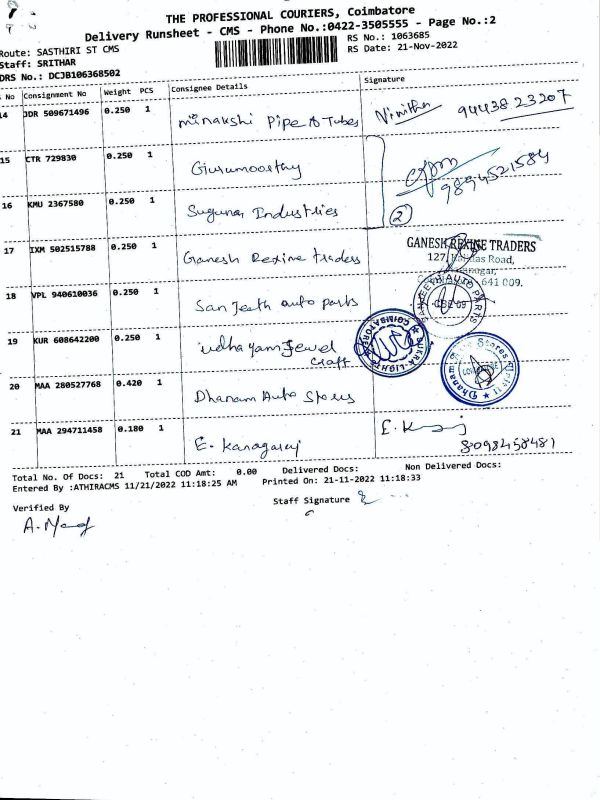 THE PROFESSIONAL COURIERS, Coimbatore
Delivery Runsheet - CMS - Phone No.:0422-3505555 - Page No.:2
Route: SASTHIRI ST CMS
RS No.: 1063685
Staff: SRITHAR
RS Date: 21-Nov-2022
DRS No.: DCJB106368502
No Consignment No Weight PCS Consignee Details Signature
14 DDR 509671496 0.250 1 Minakshi Pipe & Tubes Nimitha 94438 23207
15 CTR 729830 0.250 1 Gurumoorthy 9894521584
16 KMU 2367580 0.250 1 Suguna Industries 2
17 IXM 502515788 0.250 1 Ganesh Rexine traders
GANESH REXINE TRADERS
127, Road,
641 009.
18 VPL 940610036 0.250 1 Sanjeeth auto parts
SANJEETH AUTO PARTS
CBE-09
19 KUR 608642200 0.250 1 udhayam Jewel
Craft
COIMBATORE
20 MAA 280527768 0.420 1 Dhanam Auto Stores
Dhanam Stores
21 MAA 294711458 0.180 1 E. Kanagaraj E. K
8098458481
Total No. Of Docs: 21 Total COD Amt: 0.00 Delivered Docs: Non Delivered Docs:
Entered By :ATHIRACMS 11/21/2022 11:18:25 AM Printed On: 21-11-2022 11:18:33
Verified By
Staff Signature